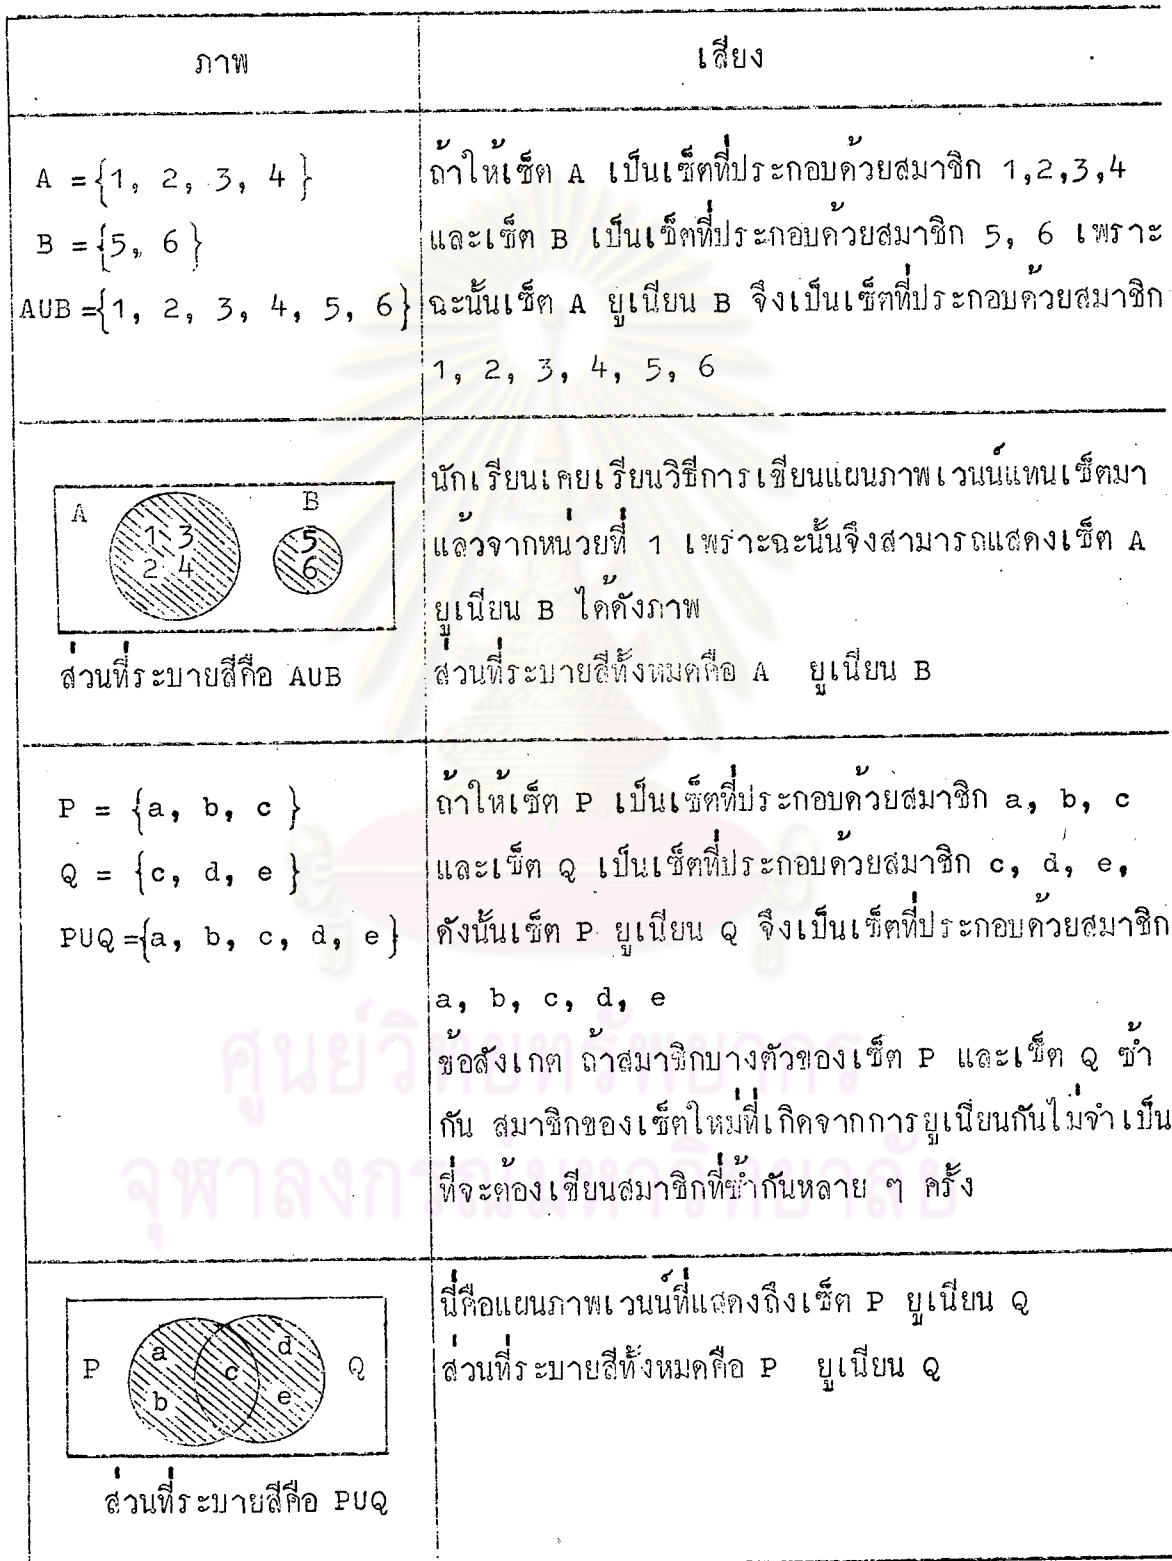 ภาพ
เสียง
A = {1, 2, 3, 4 }
B = {5, 6 }
AUB = {1, 2, 3, 4, 5, 6}
ถ้าให้เซ็ต A เป็นเซ็ตที่ประกอบด้วยสมาชิก 1,2,3,4
และเซ็ต B เป็นเซ็ตที่ประกอบด้วยสมาชิก 5, 6 เพราะ
ฉะนั้นเซ็ต A ยูเนียน B จึงเป็นเซ็ตที่ประกอบด้วยสมาชิก
1, 2, 3, 4, 5, 6
A
B
1 3
2 4
5
6
ส่วนที่ระบายสีคือ AUB
นักเรียนเคยเรียนวิธีการเขียนแผนภาพเวนน์แทนเซ็ตมา
แล้วจากหน่วยที่ 1 เพราะฉะนั้นจึงสามารถแสดงเซ็ต A
ยูเนียน B ได้ดังภาพ
ส่วนที่ระบายสีทั้งหมดคือ A ยูเนียน B
P = {a, b, c }
Q = {c, d, e }
PUQ = {a, b, c, d, e}
ถ้าให้เซ็ต P เป็นเซ็ตที่ประกอบด้วยสมาชิก a, b, c
และเซ็ต Q เป็นเซ็ตที่ประกอบด้วยสมาชิก c, d, e,
ดังนั้นเซ็ต P ยูเนียน Q จึงเป็นเซ็ตที่ประกอบด้วยสมาชิก
a, b, c, d, e
ข้อสังเกต ถ้าสมาชิกบางตัวของเซ็ต P และเซ็ต Q ซ้ำ
กัน สมาชิกของเซ็ตใหม่ที่เกิดจากการยูเนียนกันไม่จำเป็น
ที่จะต้องเขียนสมาชิกที่ซ้ำกันหลาย ๆ ครั้ง
ศูนย์วิทยทรัพยากร
จุฬาลงกรณ์มหาวิทยาลัย
P
a
b
c
d
e
Q
ส่วนที่ระบายสีคือ PUQ
นี่คือแผนภาพเวนน์ที่แสดงถึงเซ็ต P ยูเนียน Q
ส่วนที่ระบายสีทั้งหมดคือ P ยูเนียน Q